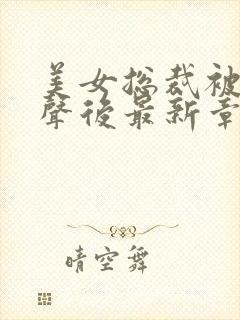 美女総裁被
聲後最新章
晴空舞